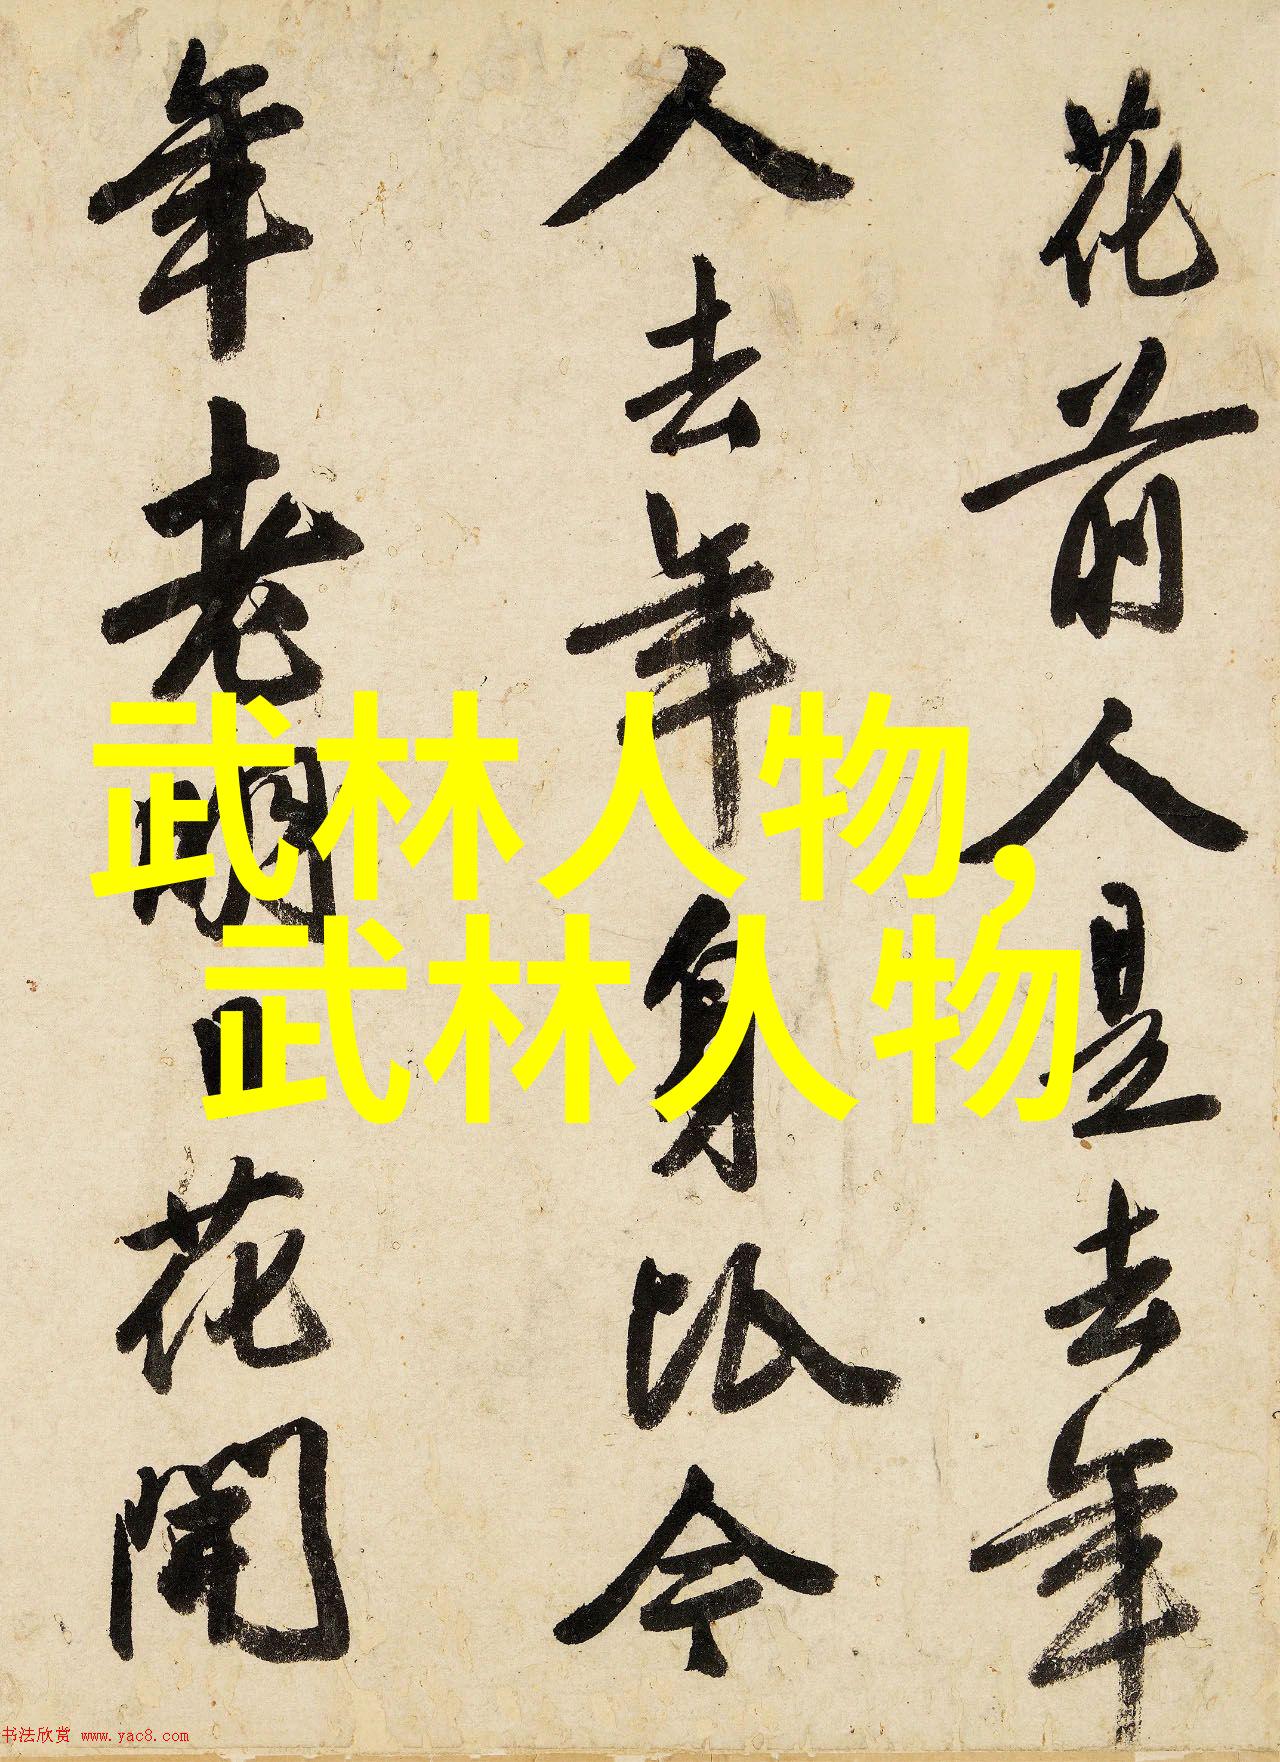 花前人是去年
人去年身比今
年老明日花開
武林人物,
武林人物
书法欣赏 www.yac8.com